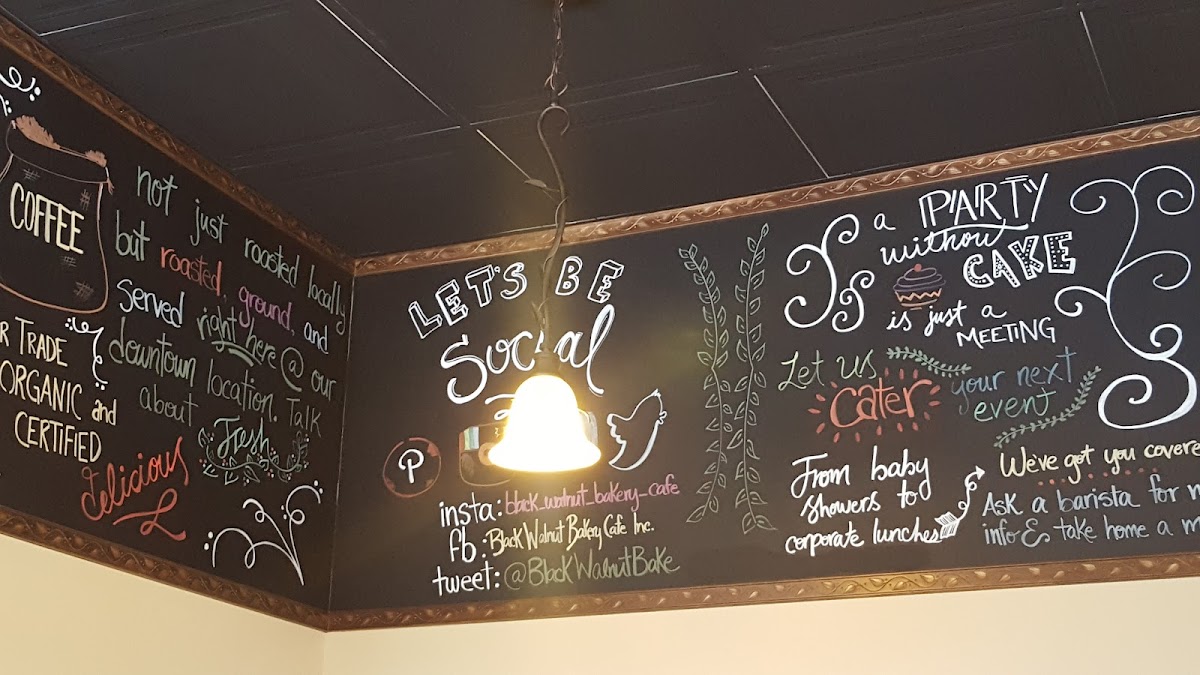 COFFEE
not just roasted locally
but roasted, ground, and
served right here @ our
downtown location. Talk
about Fresh
R TRADE
ORGANIC and
CERTIFIED
Delicious
LET'S BE
Social
insta: black_walnut_bakery_cafe
fb: Black Walnut Bakery Cafe Inc.
tweet: @BlackWalnutBake
a PARTY
without
CAKE
is just a
MEETING
Let us
cater
your next
event
From baby
showers to
corporate lunches
We've got you covere
Ask a barista for m
info & take home a m